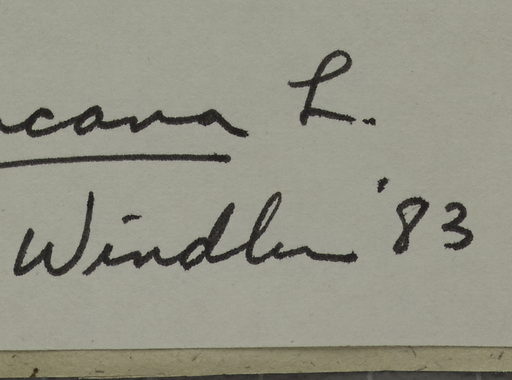 acana L.
Windler '83